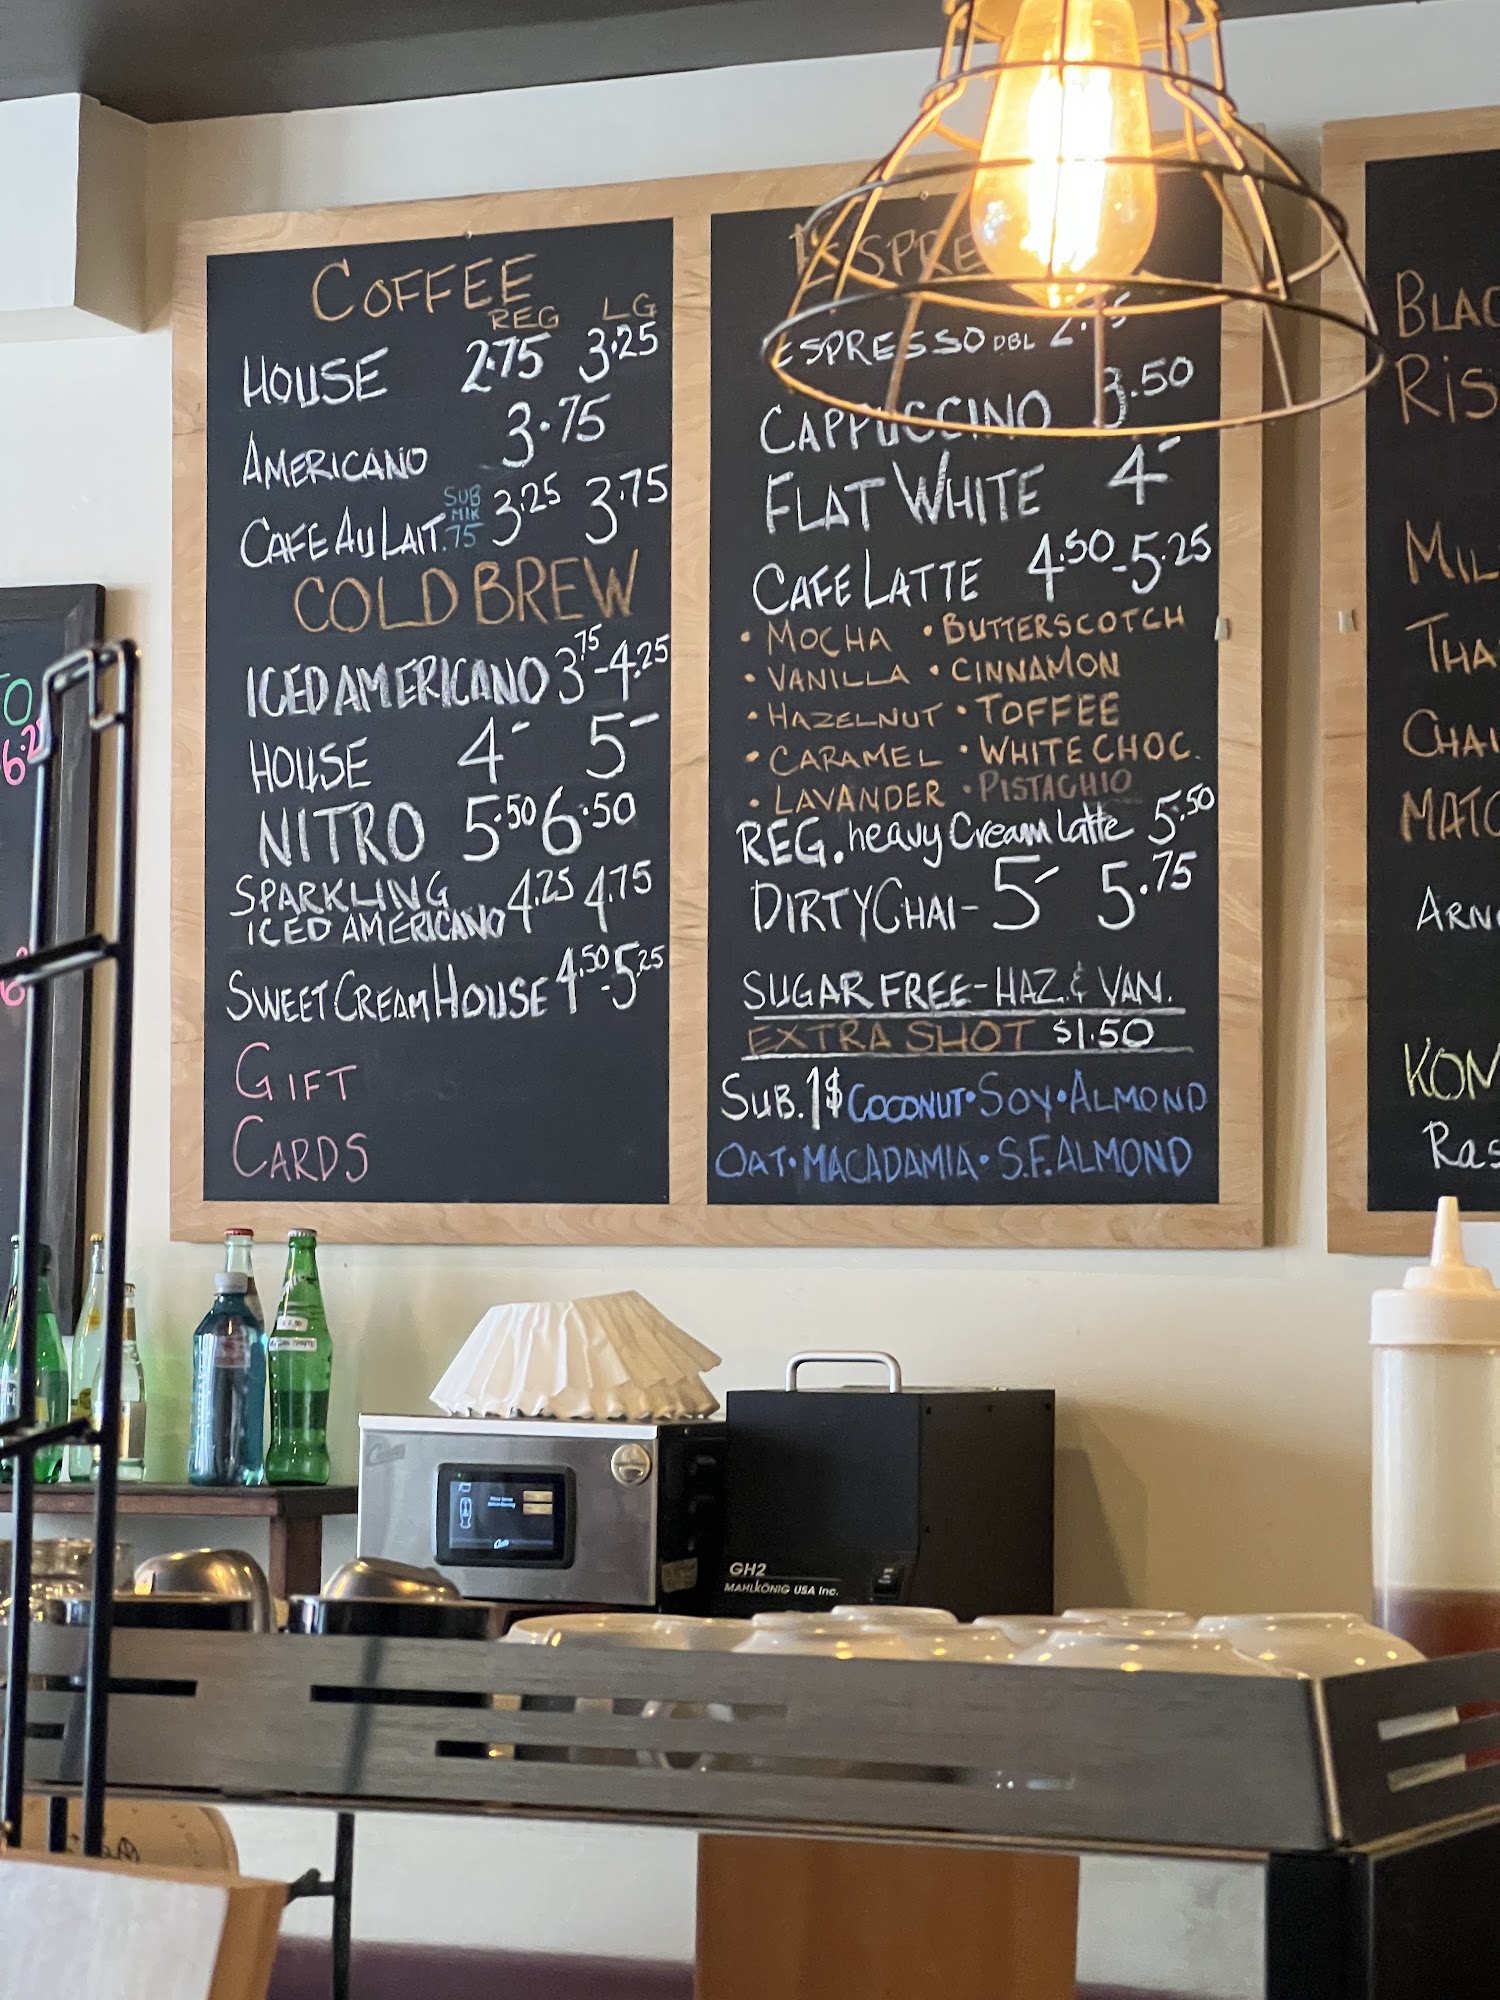 COFFEE
REG LG
HOUSE 2.75 3.25
AMERICANO 3.75
CAFE AU LAIT SUB MIK .75 3.25 3.75
COLD BREW
ICED AMERICANO 3.75-4.25
HOUSE 4- 5-
NITRO 5.50 6.50
SPARKLING
ICED AMERICANO 4.25 4.75
SWEET CREAM HOUSE 4.50-5.25
GIFT
CARDS
ESPRE
ESPRESSO DBL
CAPPUCCINO 3.50
FLAT WHITE 4-
CAFE LATTE 4.50-5.25
• MOCHA • BUTTERSCOTCH
• VANILLA • CINNAMON
• HAZELNUT • TOFFEE
• CARAMEL • WHITE CHOC.
• LAVANDER • PISTACHIO
REG. heavy Cream Latte 5.50
DIRTY CHAI- 5- 5.75
SUGAR FREE-HAZ. & VAN.
EXTRA SHOT $1.50
SUB. 1$ COCONUT • SOY • ALMOND
OAT • MACADAMIA • S.F. ALMOND
BLAC
RIS
MIL
THA
CHAI
MATC
ARN
KOM
Ras
TO
6.2
GH2
MAHLKÖNIG USA Inc.